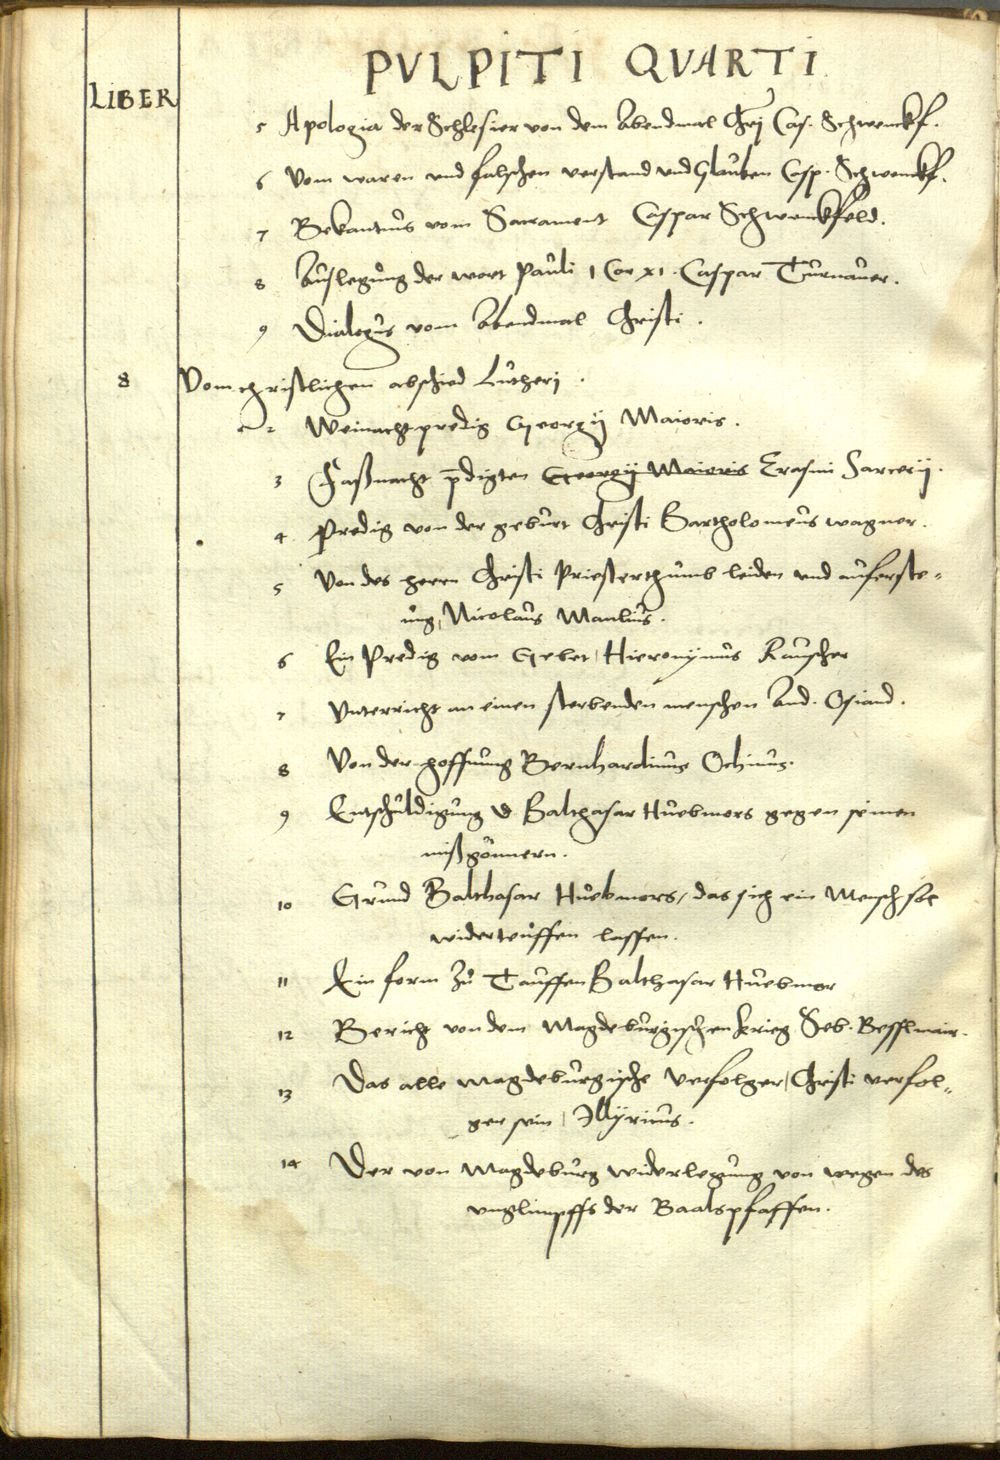 PVLPITI QVARTI
LIBER
5 Apologia der Schlesier von dem Abendmal Chrj Cas. Schwenckf.
6 Vom waren und falschen verstand und Glauben Casp. Schwenckf.
7 Bekantnus vom Sacrament Caspar Schwenckfeld.
8 Auslegung der wort Pauli 1 Cor XI. Caspar Turnauer.
9 Dialogus vom Abendmal Christi.
8 Vom christlichen abschied Lutherj.
2 Weinacht predig Georgij Maioris.
3 Faßnacht p̄digten Georgij Maioris Erasmi Sarcerij.
4 Predig von der geburt Christi Bartholomeus wagner.
5 Von des herrn Christi Priesterthumb leiden und auferste-
ung, Nicolaus Manlius.
6 Ein Predig vom Gebet, Hieronymus Rauscher
7 Unterricht an einen sterbenden menschen And. Osiand.
8 Von der hoffnung Bernhardinus Ochinus.
9 Entschuldigung D Balthasar Huebmors gegen seinen
mißgönnern.
10 Grund Balthasar Huebmors, das sich ein Mensch sol
widerteuffen lassen.
11 Ein form zu Tauffen Balthasar Huebmor
12 Bericht von dem Magdeburgischen krieg Seb. Besselmair.
13 Das alle magdeburgische Verfolger, Christi verfol-
ger sein, Illyricus.
14 Der von Magdeburg widerlegung von wegen des
unglimpffs der Baalspfaffen.